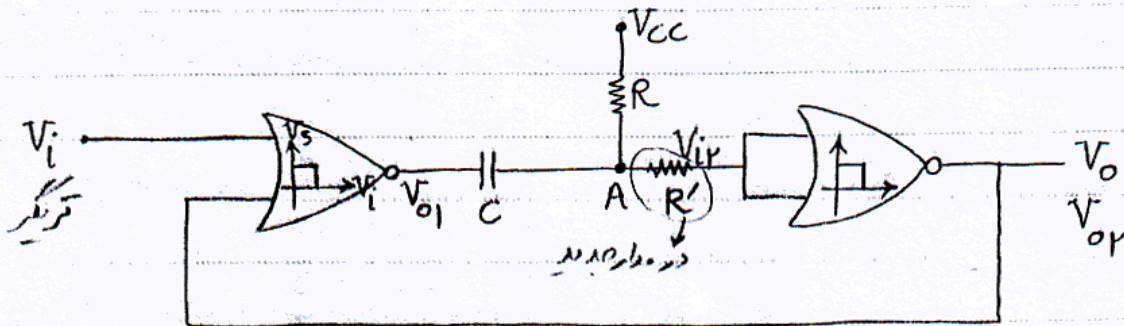 Vcc
R
Vi
تریگر
Vs
Vi
Vo1
C
A
Vi۲
R'
در مدار جدید
Vo
Vo۲